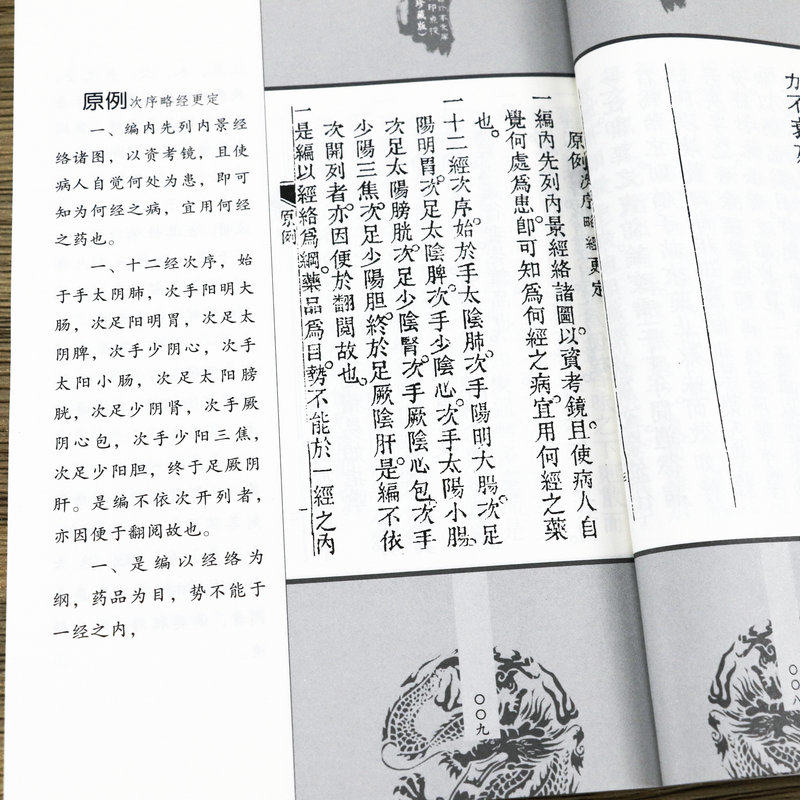 原例次序略经更定
一、编内先列内景经
络诸图，以资考镜，且使
病人自觉何处为患，即可
知为何经之病，宜用何经
之药也。
一、十二经次序，始
于手太阴肺，次手阳明大
肠，次足阳明胃，次足太
阴脾，次手少阴心，次手
太阳小肠，次足太阳膀
胱，次足少阴肾，次手厥
阴心包，次手少阳三焦，
次足少阳胆，终于足厥阴
肝。是编不依次开列者，
亦因便于翻阅故也。
一、是编以经络为
纲，药品为目，势不能于
一经之内，
原例次序略經更定
一編內先列內景經絡諸圖。以資考鏡。且使病人自
覺何處爲患。卽可知爲何經之病。宜用何經之藥
也。
一十二經次序。始於手太陰肺。次手陽明大腸。次足
陽明胃。次足太陰脾。次手少陰心。次手太陽小腸。
次足太陽膀胱。次足少陰腎。次手厥陰心包。次手
少陽三焦。次足少陽胆。終於足厥陰肝。是編不依
次開列者。亦因便於翻閱故也。
一是編以經絡爲綱。藥品爲目。勢不能於一經之內
原例
一
〇〇九
〇〇八